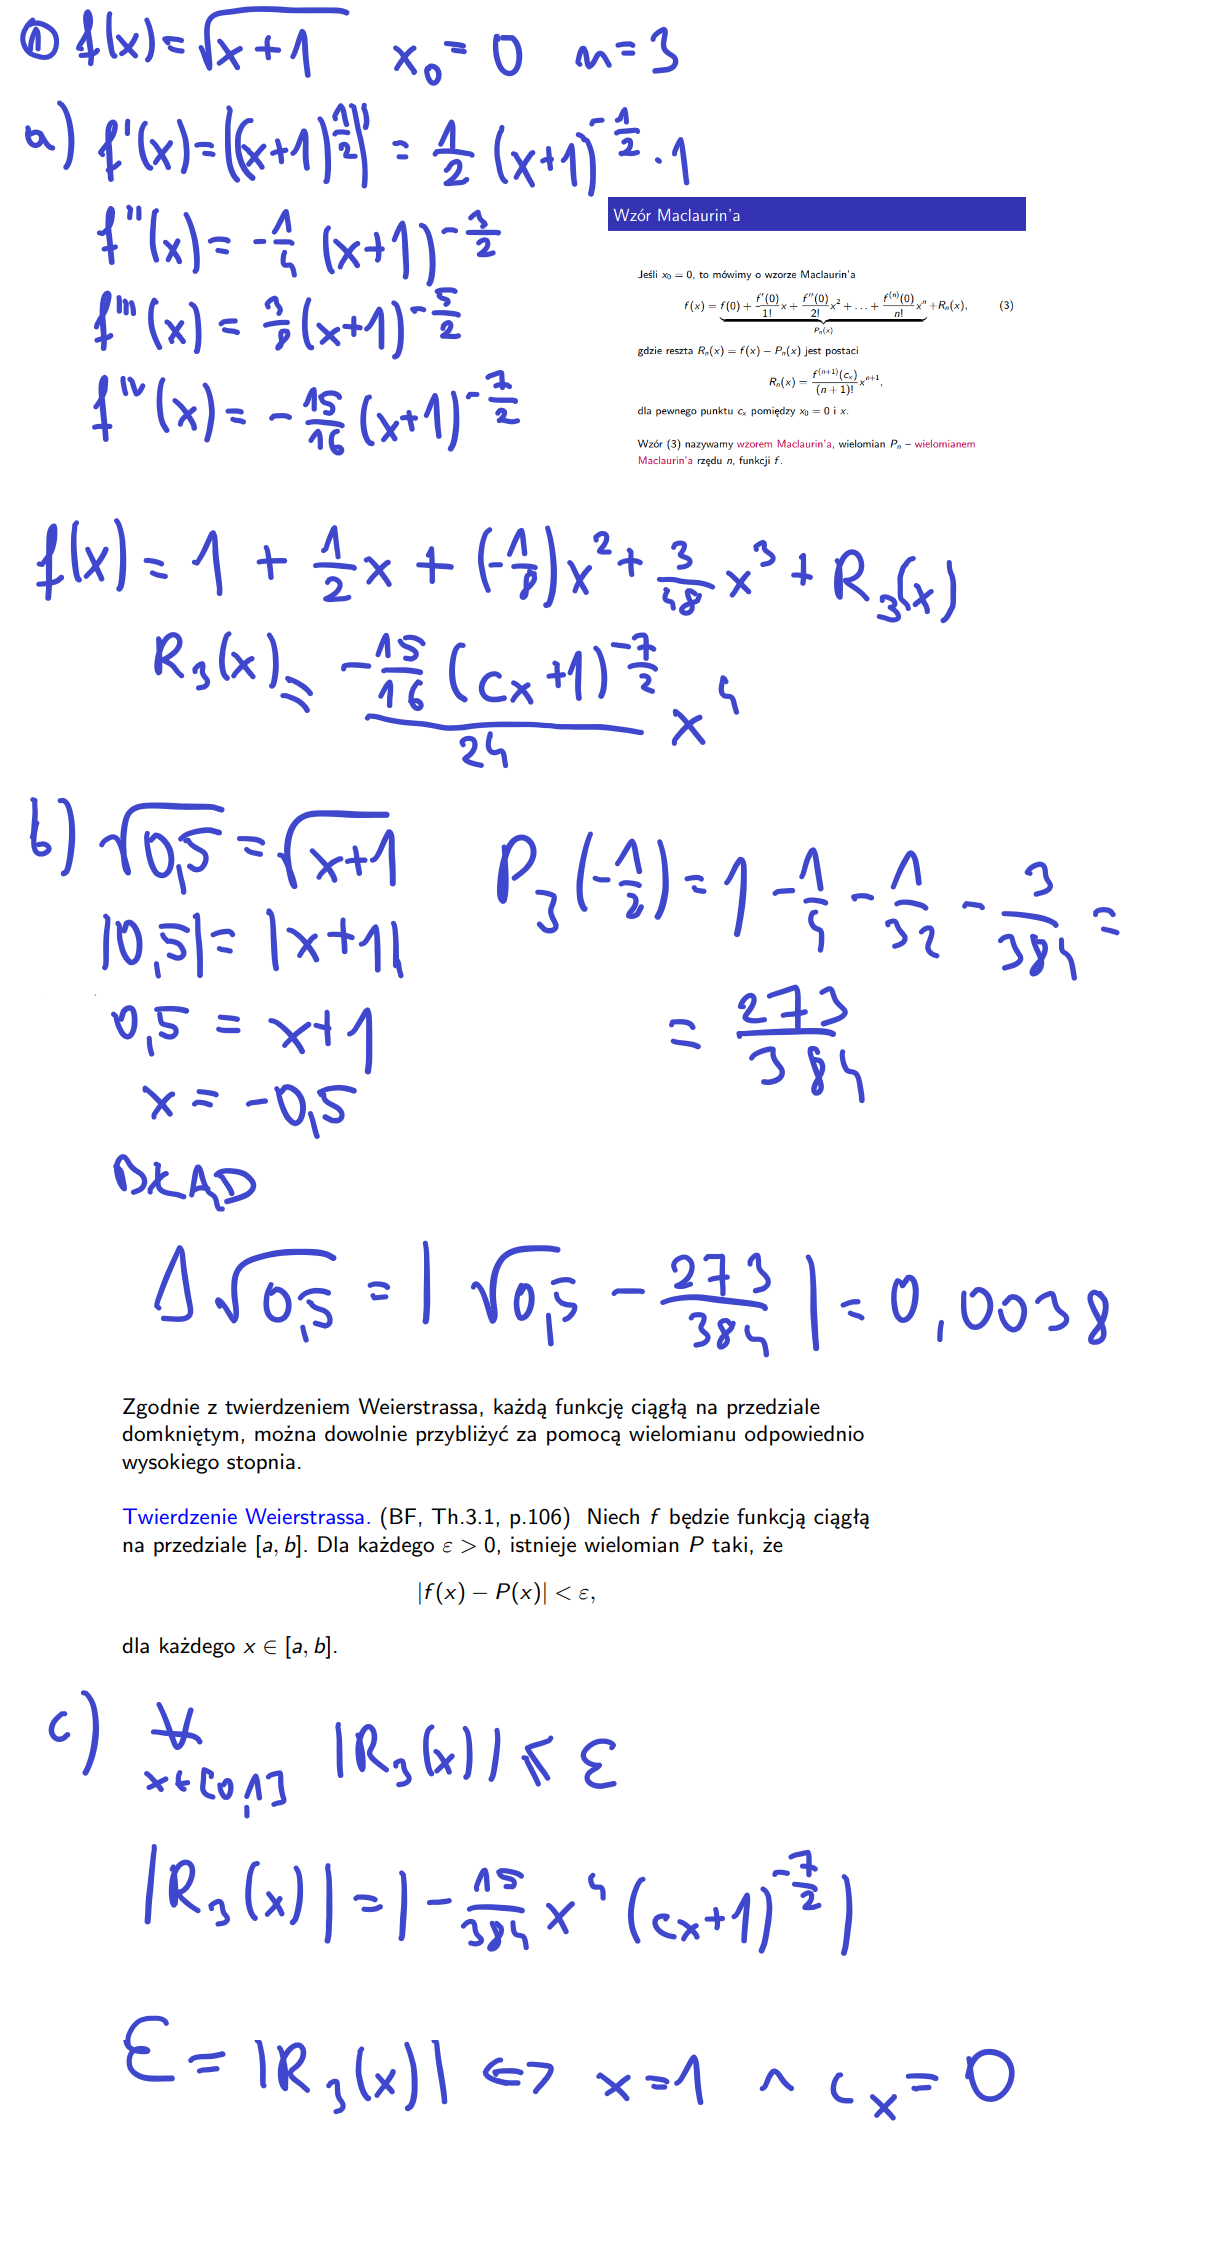 ① f(x) = √(x+1)   x₀ = 0   n = 3
a) f'(x) = ((x+1)^(1/2))' = 1/2 (x+1)^(-1/2) · 1
f''(x) = -1/4 (x+1)^(-3/2)
f'''(x) = 3/8 (x+1)^(-5/2)
f^IV(x) = -15/16 (x+1)^(-7/2)
Wzór Maclaurin'a
Jeśli x₀ = 0, to mówimy o wzorze Maclaurin'a
f(x) = f(0) + f'(0)/1! x + f''(0)/2! x² + ... + f^(n)(0)/n! xⁿ + Rₙ(x),   (3)
Pₙ(x)
gdzie reszta Rₙ(x) = f(x) − Pₙ(x) jest postaci
Rₙ(x) = f^(n+1)(cₓ)/(n+1)! x^(n+1),
dla pewnego punktu cₓ pomiędzy x₀ = 0 i x.
Wzór (3) nazywamy wzorem Maclaurin'a, wielomian Pₙ – wielomianem
Maclaurin'a rzędu n, funkcji f.
f(x) = 1 + 1/2 x + (-1/8) x² + 3/48 x³ + R₃(x)
R₃(x) = (-15/16 (cx+1)^(-7/2))/24 x⁴
b) √0,5 = √(x+1)   P₃(-1/2) = 1 - 1/4 - 1/32 - 3/384 =
|0,5| = |x+1|
0,5 = x+1   = 273/384
x = -0,5
BŁĄD
Δ√0,5 = |√0,5 - 273/384| = 0,0038
Zgodnie z twierdzeniem Weierstrassa, każdą funkcję ciągłą na przedziale
domkniętym, można dowolnie przybliżyć za pomocą wielomianu odpowiednio
wysokiego stopnia.
Twierdzenie Weierstrassa. (BF, Th.3.1, p.106) Niech f będzie funkcją ciągłą
na przedziale [a, b]. Dla każdego ε > 0, istnieje wielomian P taki, że
|f(x) − P(x)| < ε,
dla każdego x ∈ [a, b].
c) ∀ x∈[0,1]   |R₃(x)| ≤ ε
|R₃(x)| = |-15/384 x⁴ (cx+1)^(-7/2)|
ε = |R₃(x)| ⇔ x = 1 ∧ cₓ = 0